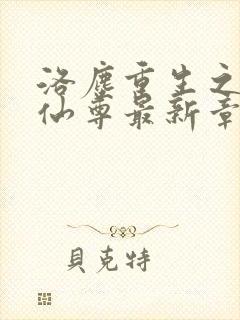 洛塵重生之
仙尊最新章
貝克特